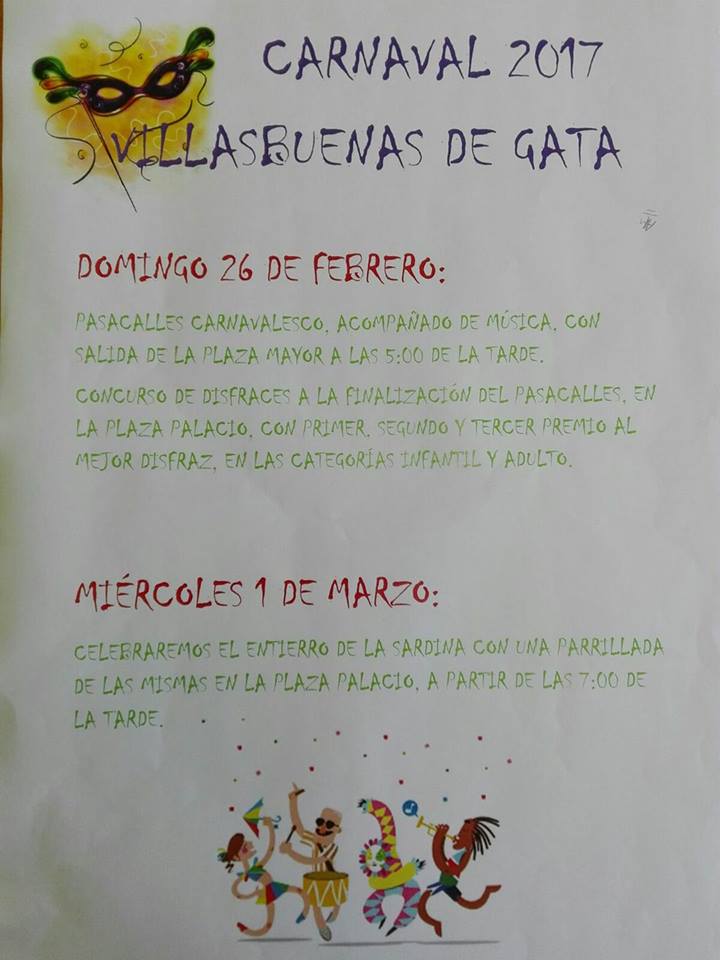 CARNAVAL 2017
VILLASBUENAS DE GATA
DOMINGO 26 DE FEBRERO:
PASACALLES CARNAVALESCO, ACOMPAÑADO DE MÚSICA, CON
SALIDA DE LA PLAZA MAYOR A LAS 5:00 DE LA TARDE.
CONCURSO DE DISFRACES A LA FINALIZACIÓN DEL PASACALLES, EN
LA PLAZA PALACIO, CON PRIMER, SEGUNDO Y TERCER PREMIO AL
MEJOR DISFRAZ, EN LAS CATEGORÍAS INFANTIL Y ADULTO.
MIÉRCOLES 1 DE MARZO:
CELEBRAREMOS EL ENTIERRO DE LA SARDINA CON UNA PARRILLADA
DE LAS MISMAS EN LA PLAZA PALACIO, A PARTIR DE LAS 7:00 DE
LA TARDE.